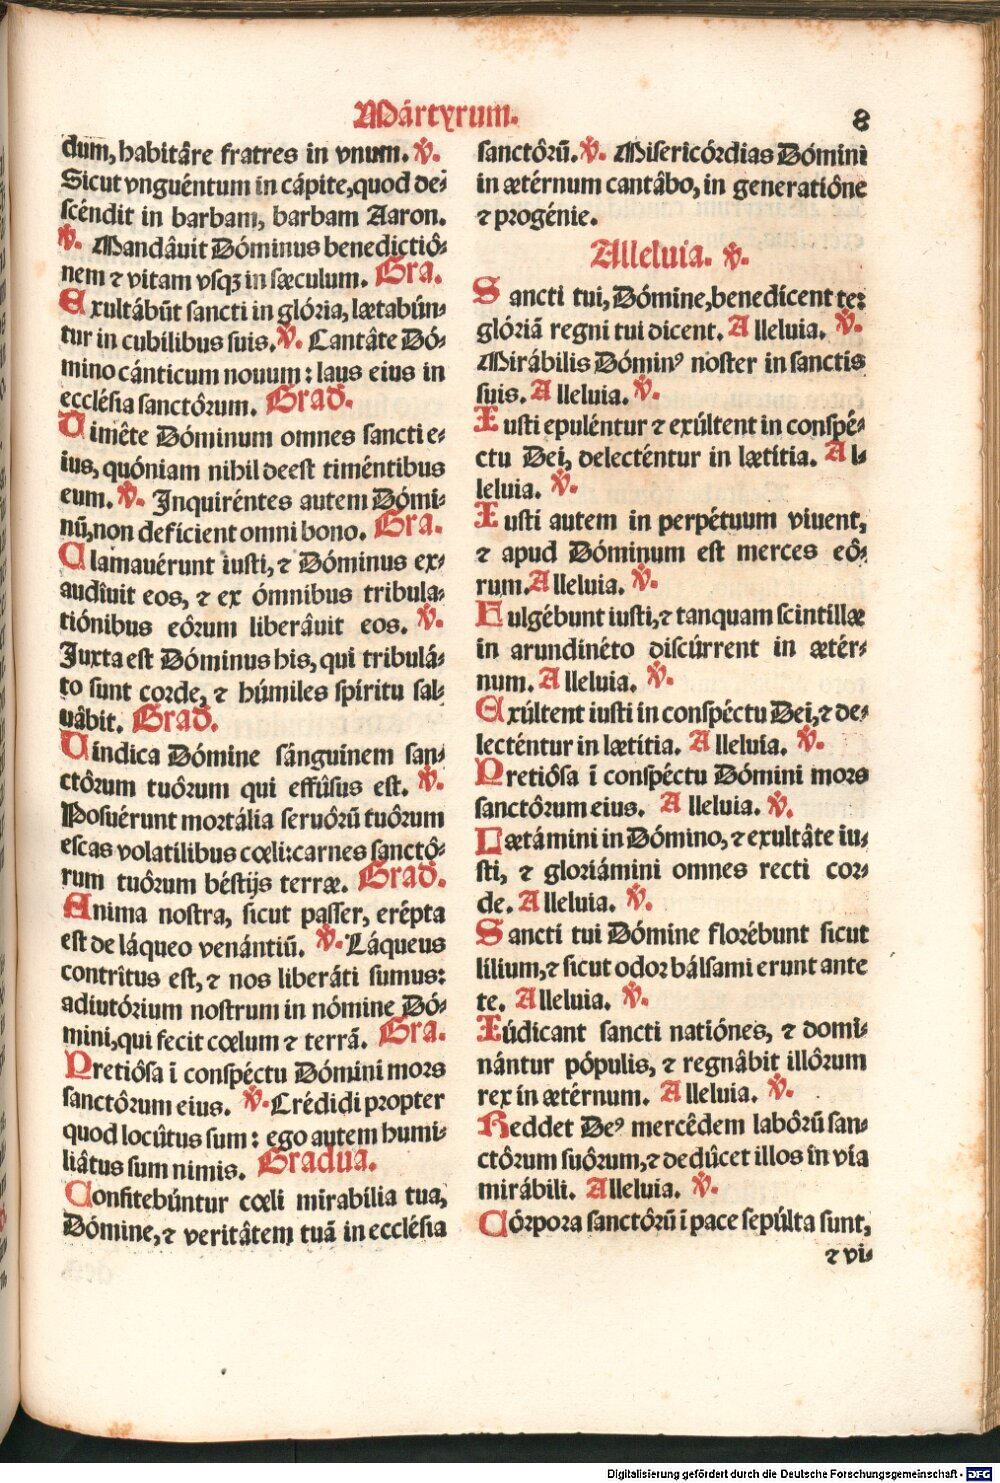 Mártyrum.
8
dum, habitâre fratres in vnum. ℣.
Sicut vnguéntum in cápite, quod de⸗
scéndit in barbam, barbam Aaron.
℣. Mandâuit Dóminus benedictiô⸗
nem ⁊ vitam vsqꝫ in sæculum. Gra.
Exultábūt sancti in glória, lætabún⸗
tur in cubilibus suis. ℣. Cantâte Dó⸗
mino cánticum nouum: laus eius in
ecclésia sanctôrum. Grad.
Timête Dóminum omnes sancti e⸗
ius, quóniam nihil deest timéntibus
eum. ℣. Inquiréntes autem Dómi⸗
nū, non defícient omni bono. Gra.
Clamauérunt iusti, ⁊ Dóminus ex⸗
audîuit eos, ⁊ ex ómnibus tribula⸗
tiónibus eôrum liberâuit eos. ℣.
Juxta est Dóminus his, qui tribulá⸗
to sunt corde, ⁊ húmiles spíritu sal⸗
uâbit. Grad.
Vindica Dómine sánguinem san⸗
ctôrum tuôrum qui effûsus est. ℣.
Posuérunt mortália seruôrū tuôrum
escas volatílibus cœli: carnes sanctô⸗
rum tuôrum béstijs terræ. Grad.
Anima nostra, sicut passer, erépta
est de láqueo venántiū. ℣. Láqueus
contrîtus est, ⁊ nos liberáti sumus:
adiutórium nostrum in nómine Dó⸗
mini, qui fecit cœlum ⁊ terrā. Gra.
Pretiôsa ī conspéctu Dómini mors
sanctôrum eius. ℣. Crédidi propter
quod locûtus sum: ego autem humi⸗
liâtus sum nimis. Gradua.
Confitebúntur cœli mirabília tua,
Dómine, ⁊ veritâtem tuā in ecclésia
sanctôrū. ℣. Misericórdias Dómini
in ætérnum cantâbo, in generatiône
⁊ progénie.
Alleluia. ℣.
Sancti tui, Dómine, benedícent te:
glóriā regni tui dicent. Alleluia. ℣.
Mirábilis Dóminꝰ noster in sanctis
suis. Alleluia. ℣.
Iusti epuléntur ⁊ exúltent in conspé⸗
ctu Dei, delecténtur in lætítia. Al⸗
leluia. ℣.
Iusti autem in perpétuum viuent,
⁊ apud Dóminum est merces eô⸗
rum. Alleluia. ℣.
Fulgébunt iusti, ⁊ tanquam scintíllæ
in arundinéto discúrrent in ætér⸗
num. Alleluia. ℣.
Exúltent iusti in conspéctu Dei, ⁊ de⸗
lecténtur in lætítia. Alleluia. ℣.
Pretiôsa ī conspéctu Dómini mors
sanctôrum eius. Alleluia. ℣.
Lætámini in Dómino, ⁊ exultâte iu⸗
sti, ⁊ gloriámini omnes recti cor⸗
de. Alleluia. ℣.
Sancti tui Dómine florébunt sicut
lílium, ⁊ sicut odor bálsami erunt ante
te. Alleluia. ℣.
Iúdicant sancti natiónes, ⁊ domi⸗
nántur pópulis, ⁊ regnâbit illôrum
rex in ætérnum. Alleluia. ℣.
Reddet Deꝰ mercêdem labôrū san⸗
ctôrum suôrum, ⁊ dedûcet illos in via
mirábili. Alleluia. ℣.
Córpora sanctôrū ī pace sepúlta sunt,
⁊ vi⸗
Digitalisierung gefördert durch die Deutsche Forschungsgemeinschaft - DFG